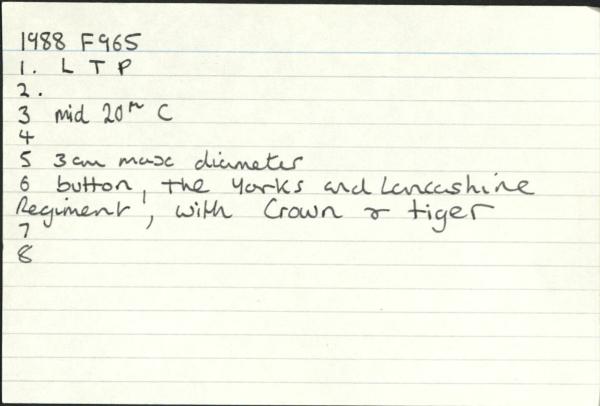 1988 F965
1. L T P
2.
3 mid 20th C
4
5 3cm max diameter
6 button, the Yorks and Lancashire
Regiment, with Crown & tiger
7
8